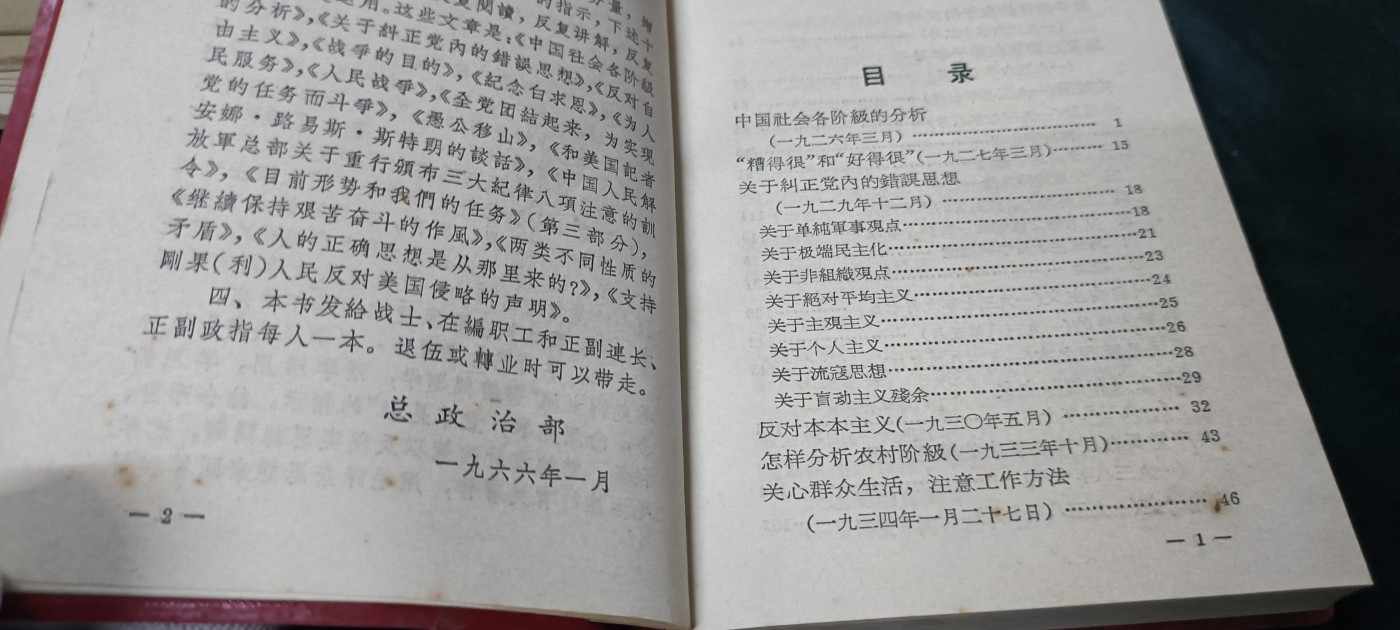 分量，增
复閱讀，反复讲解，反复
用。这些文章是：《中国社会各阶級
的指示，下述十
的分析》，《关于糾正党內的錯誤思想》，《反对自
由主义》，《战爭的目的》，《紀念白求恩》，《为人
民服务》，《人民战爭》，《全党団結起来，为实现
党的任务而斗爭》，《愚公移山》，《和美国記者
安娜·路易斯·斯特朗的談話》，《中国人民解
放軍总部关于重行頒布三大紀律八項注意的訓
令》，《目前形势和我們的任务》(第三部分)，
《继續保持艰苦奋斗的作風》，《两类不同性质的
矛盾》，《人的正确思想是从那里来的?》，《支持
剛果(利)人民反对美国侵略的声明》。
四、本书发給战士、在編职工和正副連长、
正副政指每人一本。退伍或轉业时可以带走。
总政治部
一九六六年一月
— 2 —
目 录
中国社会各阶級的分析
(一九二六年三月)…………………… 1
“糟得很”和“好得很”(一九二七年三月)……… 15
关于糾正党內的錯誤思想
(一九二九年十二月)…………………… 18
关于单純軍事观点……………………18
关于极端民主化……………………21
关于非組織观点……………………23
关于絕对平均主义……………………24
关于主观主义……………………25
关于个人主义……………………26
关于流寇思想……………………28
关于盲动主义殘余……………………29
反对本本主义(一九三〇年五月)…………… 32
怎样分析农村阶級(一九三三年十月)………… 43
关心群众生活，注意工作方法
(一九三四年一月二十七日)………………… 46
— 1 —